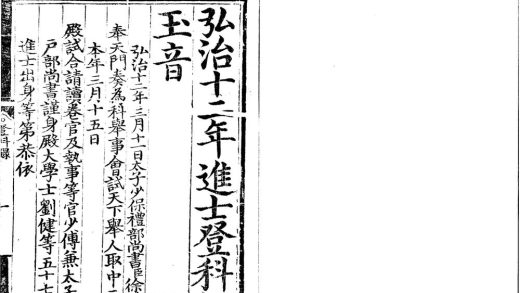 弘治十二年進士登科
玉音
弘治十二年三月十二日太子少保禮部尚書臣徐
奉天門奏為科舉事會試天下舉人取中
本年三月十五日
殿試合請讀卷官及執事等官少傅兼太子
戶部尚書謹身殿大學士劉健等五十七
進士出身等第恭依
登科錄